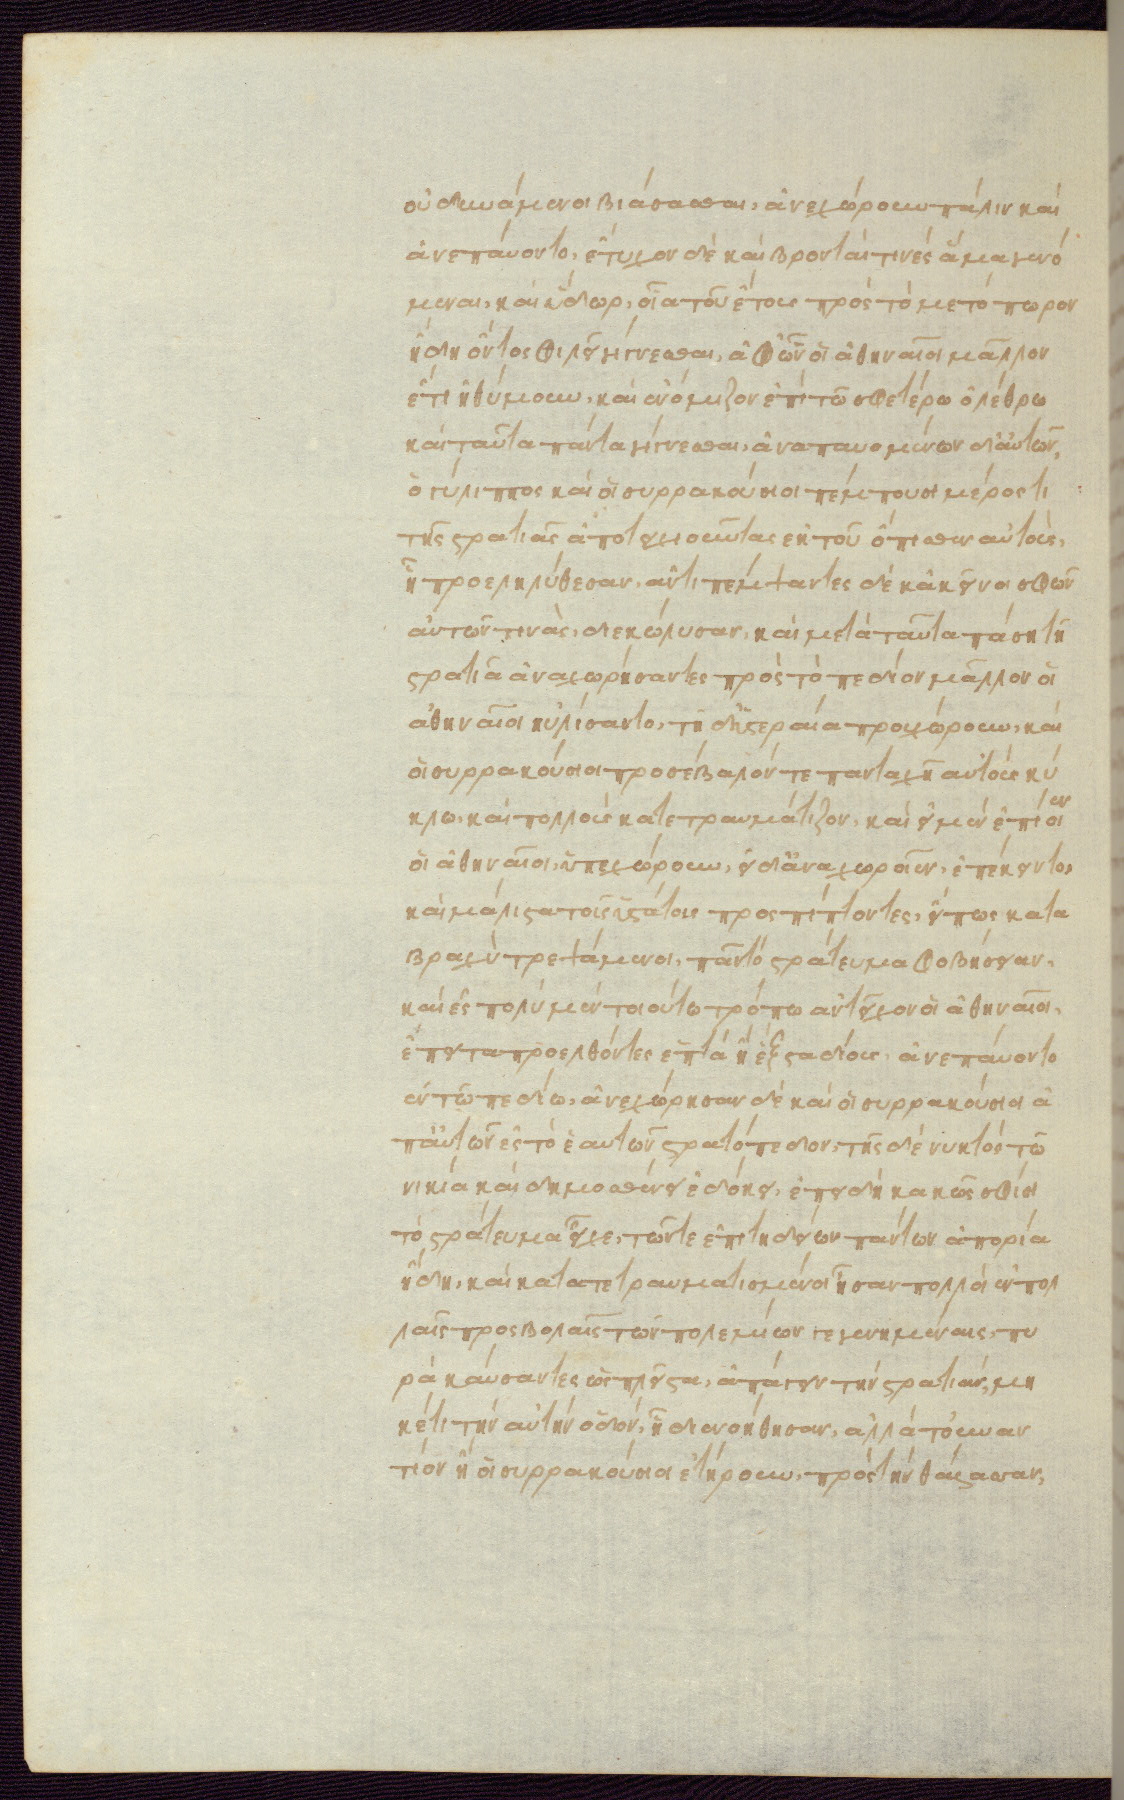 οὐ δυνάμενοι βιάσασθαι, ἀνεχώρουν πάλιν καὶ
ἀνεπαύοντο, ἔτυχον δὲ καὶ βρονταί τινές ἅμα γενό
μεναι, καὶ ὕδωρ, οἷα τοῦ ἔτους πρὸς τὸ μετόπωρον
ἤδη ὄντος φιλεῖ γίγνεσθαι, ἀφ' ὧν οἱ ἀθηναῖοι μᾶλλον
ἔτι ἠθύμουν, καὶ ἐνόμιζον ἐπὶ τῶ σφετέρω ὀλέθρω
καὶ ταῦτα πάντα γίγνεσθαι, ἀναπαυομένων δ' αὐτῶν,
ὁ γύλιππος καὶ οἱ συρρακούσιοι πέμπουσι μέρος τι
τῆς στρατιᾶς ἀποτειχιοῦντας ἐκ τοῦ ὄπισθεν αὐτοὺς,
ἧ προεληλύθεσαν, ἀντιπέμψαντες δὲ κἀκεῖνοι σφῶν
αὐτῶν τινὰς, διεκώλυσαν, καὶ μετὰ ταῦτα πάση τῆ
στρατιᾶ ἀναχωρήσαντες πρὸς τὸ πεδίον μᾶλλον οἱ
ἀθηναῖοι ηὐλίσαντο, τῆ δ' ὑστεραία προεχώρουν, καὶ
οἱ συρρακούσιοι προσέβαλόν τε πανταχῆ αὐτοῖς κύ
κλω, καὶ πολλοὺς κατετραυμάτιζον, καὶ εἰ μὲν ἐπίοιεν
οἱ ἀθηναῖοι, ὑπεχώρουν, εἰ δ' ἀναχωροῖεν, ἐπέκειντο,
καὶ μάλιστα τοῖς ὑστάτοις προσπίπτοντες, εἴ πως κατα
βραχὺ τρεψάμενοι, πᾶν τὸ στράτευμα φοβήσειαν,
καὶ ἐς πολὺ μὲν τοιούτω τρόπω ἀντεῖχον οἱ ἀθηναῖοι,
ἔπειτα προελθόντες ἑπτὰ ἢ ἓξ σταδίους, ἀνεπαύοντο
ἐν τῶ πεδίω, ἀνεχώρησαν δὲ καὶ οἱ συρρακούσιοι ἀ
π' αὐτῶν ἐς τὸ ἑαυτῶν στρατόπεδον, τῆς δὲ νυκτὸς τῶ
νικία καὶ δημοσθένει ἐδόκει, ἐπειδὴ κακῶς σφίσι
τὸ στράτευμα εἶχε, τῶν τε ἐπιτηδείων πάντων ἀπορία
ἤδη, καὶ κατατετραυματισμένοι ἦσαν πολλοὶ ἐν πολ
λαῖς προσβολαῖς τῶν πολεμίων γεγενημέναις, πυ
ρὰ καύσαντες ὡς πλεῖστα, ἀπάγειν τὴν στρατιάν, μη
κέτι τὴν αὐτὴν ὁδὸν, ἧ διενοήθησαν, ἀλλὰ τοὐναν
τίον ἢ οἱ συρρακούσιοι ἐτήρουν, πρὸς τὴν θάλασσαν,